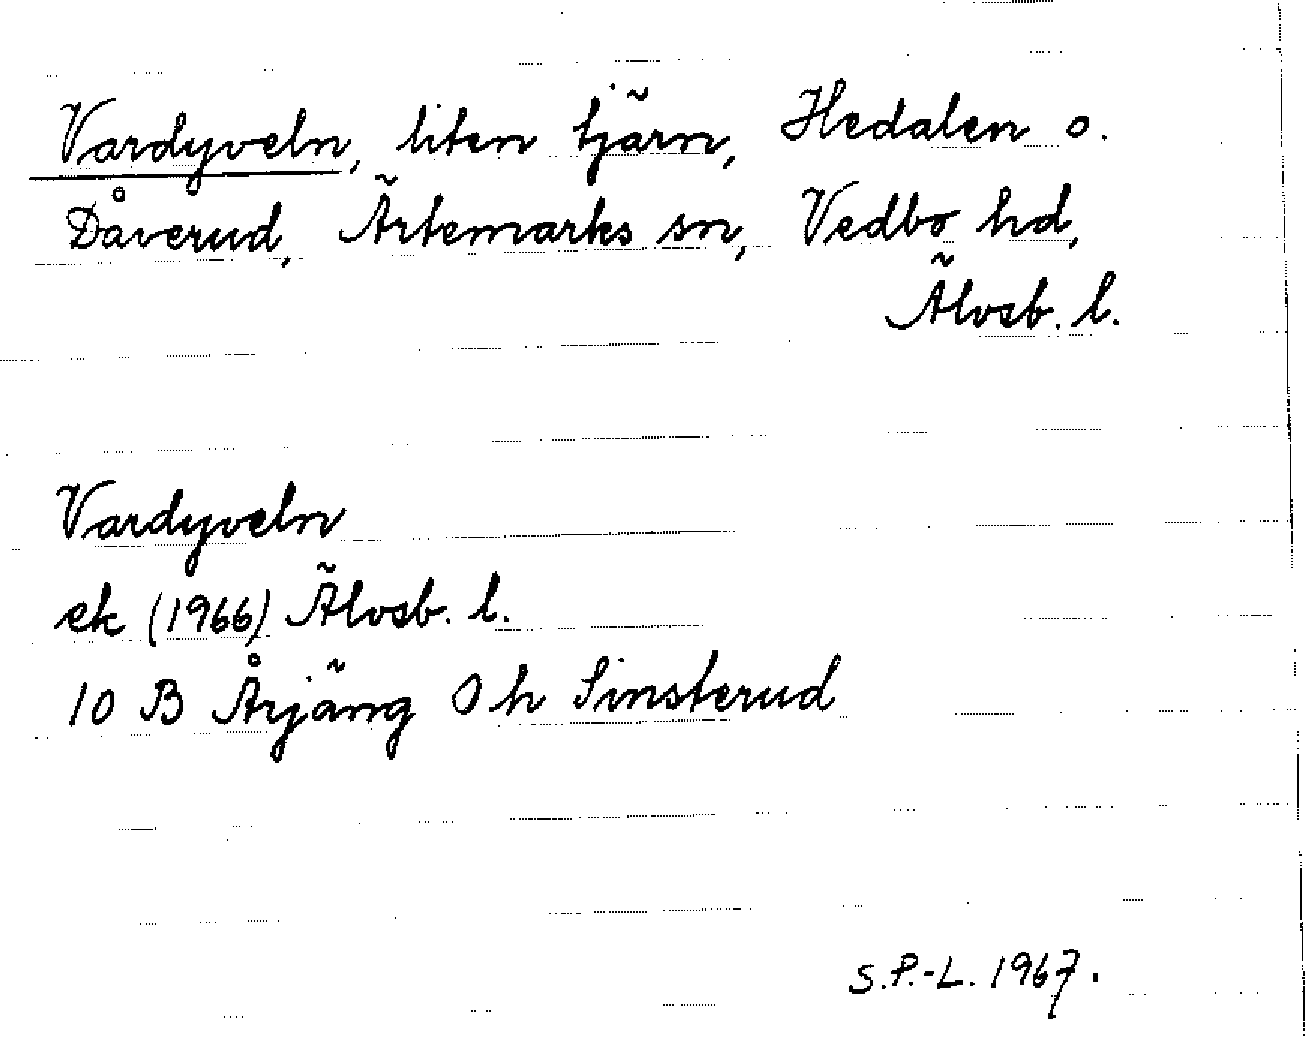 Vardyveln, liten tjärn, Hedalen o.
Dåverud, Ärtemarks sn, Vedbo hd,
Älvsb. l.
Vardyveln
ek (1966) Älvsb. l.
10 B Årjäng 0 h Sinsterud
S.P.-L. 1967.